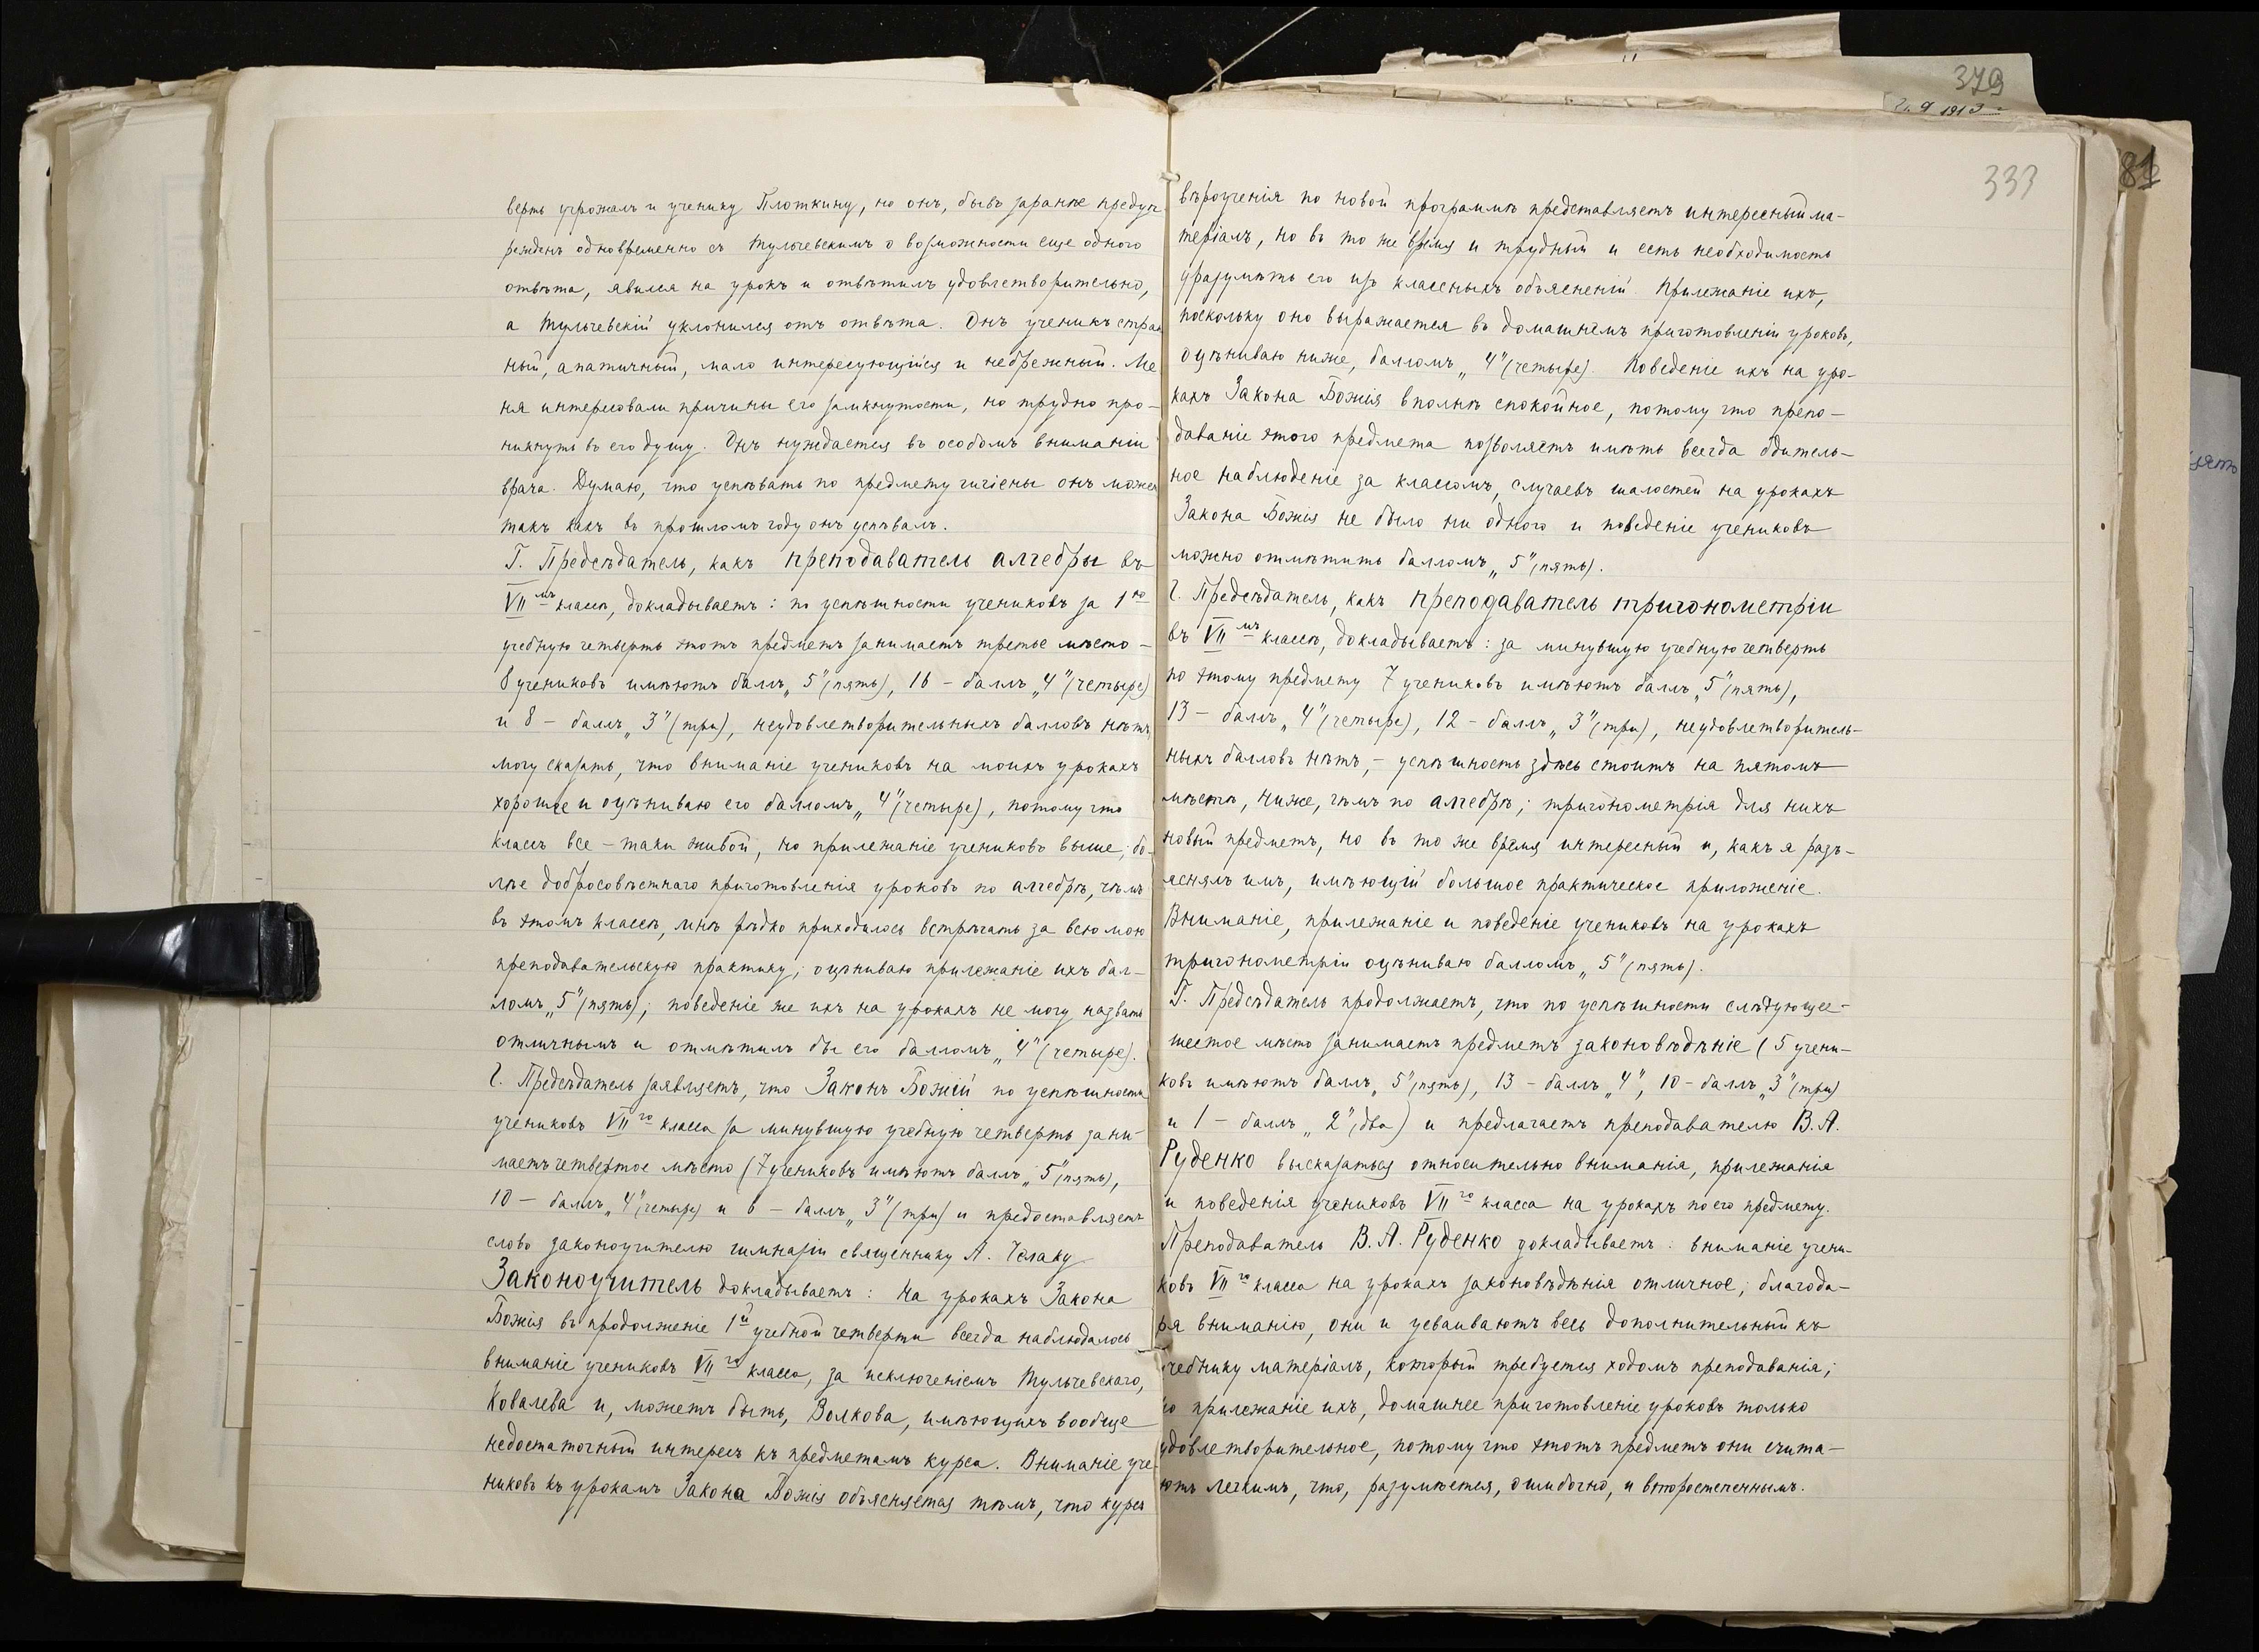 верть угрожалъ и ученику Плоткину, но онъ, бывъ заранѣе предуп
режденъ одновременно съ Тульчевскимъ о возможности еще одного
отвѣта, явился на урокъ и отвѣтилъ удовлетворительно,
а Тульчевскій уклонился отъ отвѣта. Онъ ученикъ стран
ный, апатичный, мало интересующійся и небрежный. Ме
ня интересовали причины его замкнутости, но трудно про-
никнуть въ его душу. Онъ нуждается въ особомъ вниманіи
врача. Думаю, что успѣвать по предмету гигіены онъ может
такъ какъ въ прошломъ году онъ успѣвалъ.
Г. Предсѣдатель, какъ преподаватель алгебры въ
VIIмъ классѣ, докладываетъ: по успѣшности учениковъ за 1ую
учебную четверть этотъ предметъ занимаетъ третье мѣсто-
8 учениковъ имѣютъ баллъ „5" (пять), 16 - баллъ „4" (четыре)
и 8 - баллъ „3" (три), неудовлетворительныхъ балловъ нѣтъ,
могу сказать, что вниманіе учениковъ на моихъ урокахъ
хорошее и оцѣниваю его балломъ „4" (четыре), потому что
классъ все-таки живой, но прилежаніе учениковъ выше; бо-
лѣе добросовѣстнаго приготовленія уроковъ по алгебрѣ, чѣмъ
въ этомъ классѣ, мнѣ рѣдко приходилось встрѣчать за всю мою
преподавательскую практику; оцѣниваю прилежаніе ихъ бал-
ломъ „5" (пять); поведеніе же ихъ на урокахъ не могу назвать
отличнымъ и отмѣтилъ бы его балломъ „4" (четыре).
Г. Предсѣдатель заявляетъ, что Законъ Божій по успѣшности
учениковъ VIIго класса за минувшую учебную четверть зани-
маетъ четвертое мѣсто (7 учениковъ имѣютъ баллъ „5" (пять),
10 - баллъ „4" (четыре) и 6 - баллъ „3" (три) и предоставляетъ
слово законоучителю гимназіи священнику А. Челаку
Законоучитель докладываетъ: На урокахъ Закона
Божія въ продолженіе 1й учебной четверти всегда наблюдалось
вниманіе учениковъ VIIго класса, за исключеніемъ Тульчевскаго,
Ковалева и, можетъ быть, Волкова, имѣющихъ вообще
недостаточный интересъ къ предметамъ курса. Вниманіе уче-
никовъ къ урокамъ Закона Божія объясняется тѣмъ, что курсъ
379
81
333
вѣроученія по новой программѣ представляетъ интересный ма-
теріалъ, но въ то же время и трудный и есть необходимость
уразумѣть его изъ классныхъ объясненій. Прилежаніе ихъ,
поскольку оно выражается въ домашнемъ приготовленіи уроковъ,
оцѣниваю ниже, балломъ „4" (четыре). Поведеніе ихъ на уро-
кахъ Закона Божія вполнѣ спокойное, потому что препо-
даваніе этого предмета позволяетъ имѣть всегда бдитель-
ное наблюденіе за классомъ, случаевъ шалостей на урокахъ
Закона Божія не было ни одного и поведеніе учениковъ
можно отмѣтить балломъ „5" (пять).
Г. Предсѣдатель, какъ преподаватель тригонометріи
въ VIIмъ классѣ, докладываетъ: за минувшую учебную четверть
по этому предмету 7 учениковъ имѣютъ баллъ „5" (пять),
13 - баллъ „4" (четыре), 12 - баллъ „3" (три), неудовлетворитель-
ныхъ балловъ нѣтъ, - успѣшность здѣсь стоитъ на пятомъ
мѣстѣ, ниже, чѣмъ по алгебрѣ; тригонометрія для нихъ
новый предметъ, но въ то же время интересный и, какъ я разъ-
яснялъ имъ, имѣющій большое практическое приложеніе.
Вниманіе, прилежаніе и поведеніе учениковъ на урокахъ
тригонометріи оцѣниваю балломъ „5" (пять).
Г. Предсѣдатель продолжаетъ, что по успѣшности слѣдующее-
шестое мѣсто занимаетъ предметъ законовѣдѣніе (5 учени-
ковъ имѣютъ баллъ „5" (пять), 13 - баллъ „4", 10 - баллъ „3" (три)
и 1 - баллъ „2" (два) и предлагаетъ преподавателю В. А.
Руденко высказаться относительно вниманія, прилежанія
и поведенія учениковъ VIIго класса на урокахъ по его предмету.
Преподаватель В. А. Руденко докладываетъ: вниманіе учени-
ковъ VIIго класса на урокахъ законовѣдѣнія отличное; благода-
ря вниманію, они и усваиваютъ весь дополнительный къ
учебнику матеріалъ, который требуется ходомъ преподаванія;
но прилежаніе ихъ, домашнее приготовленіе уроковъ только
удовлетворительное, потому что этотъ предметъ они счита-
ютъ легкимъ, что, разумѣется, ошибочно, и второстепеннымъ.